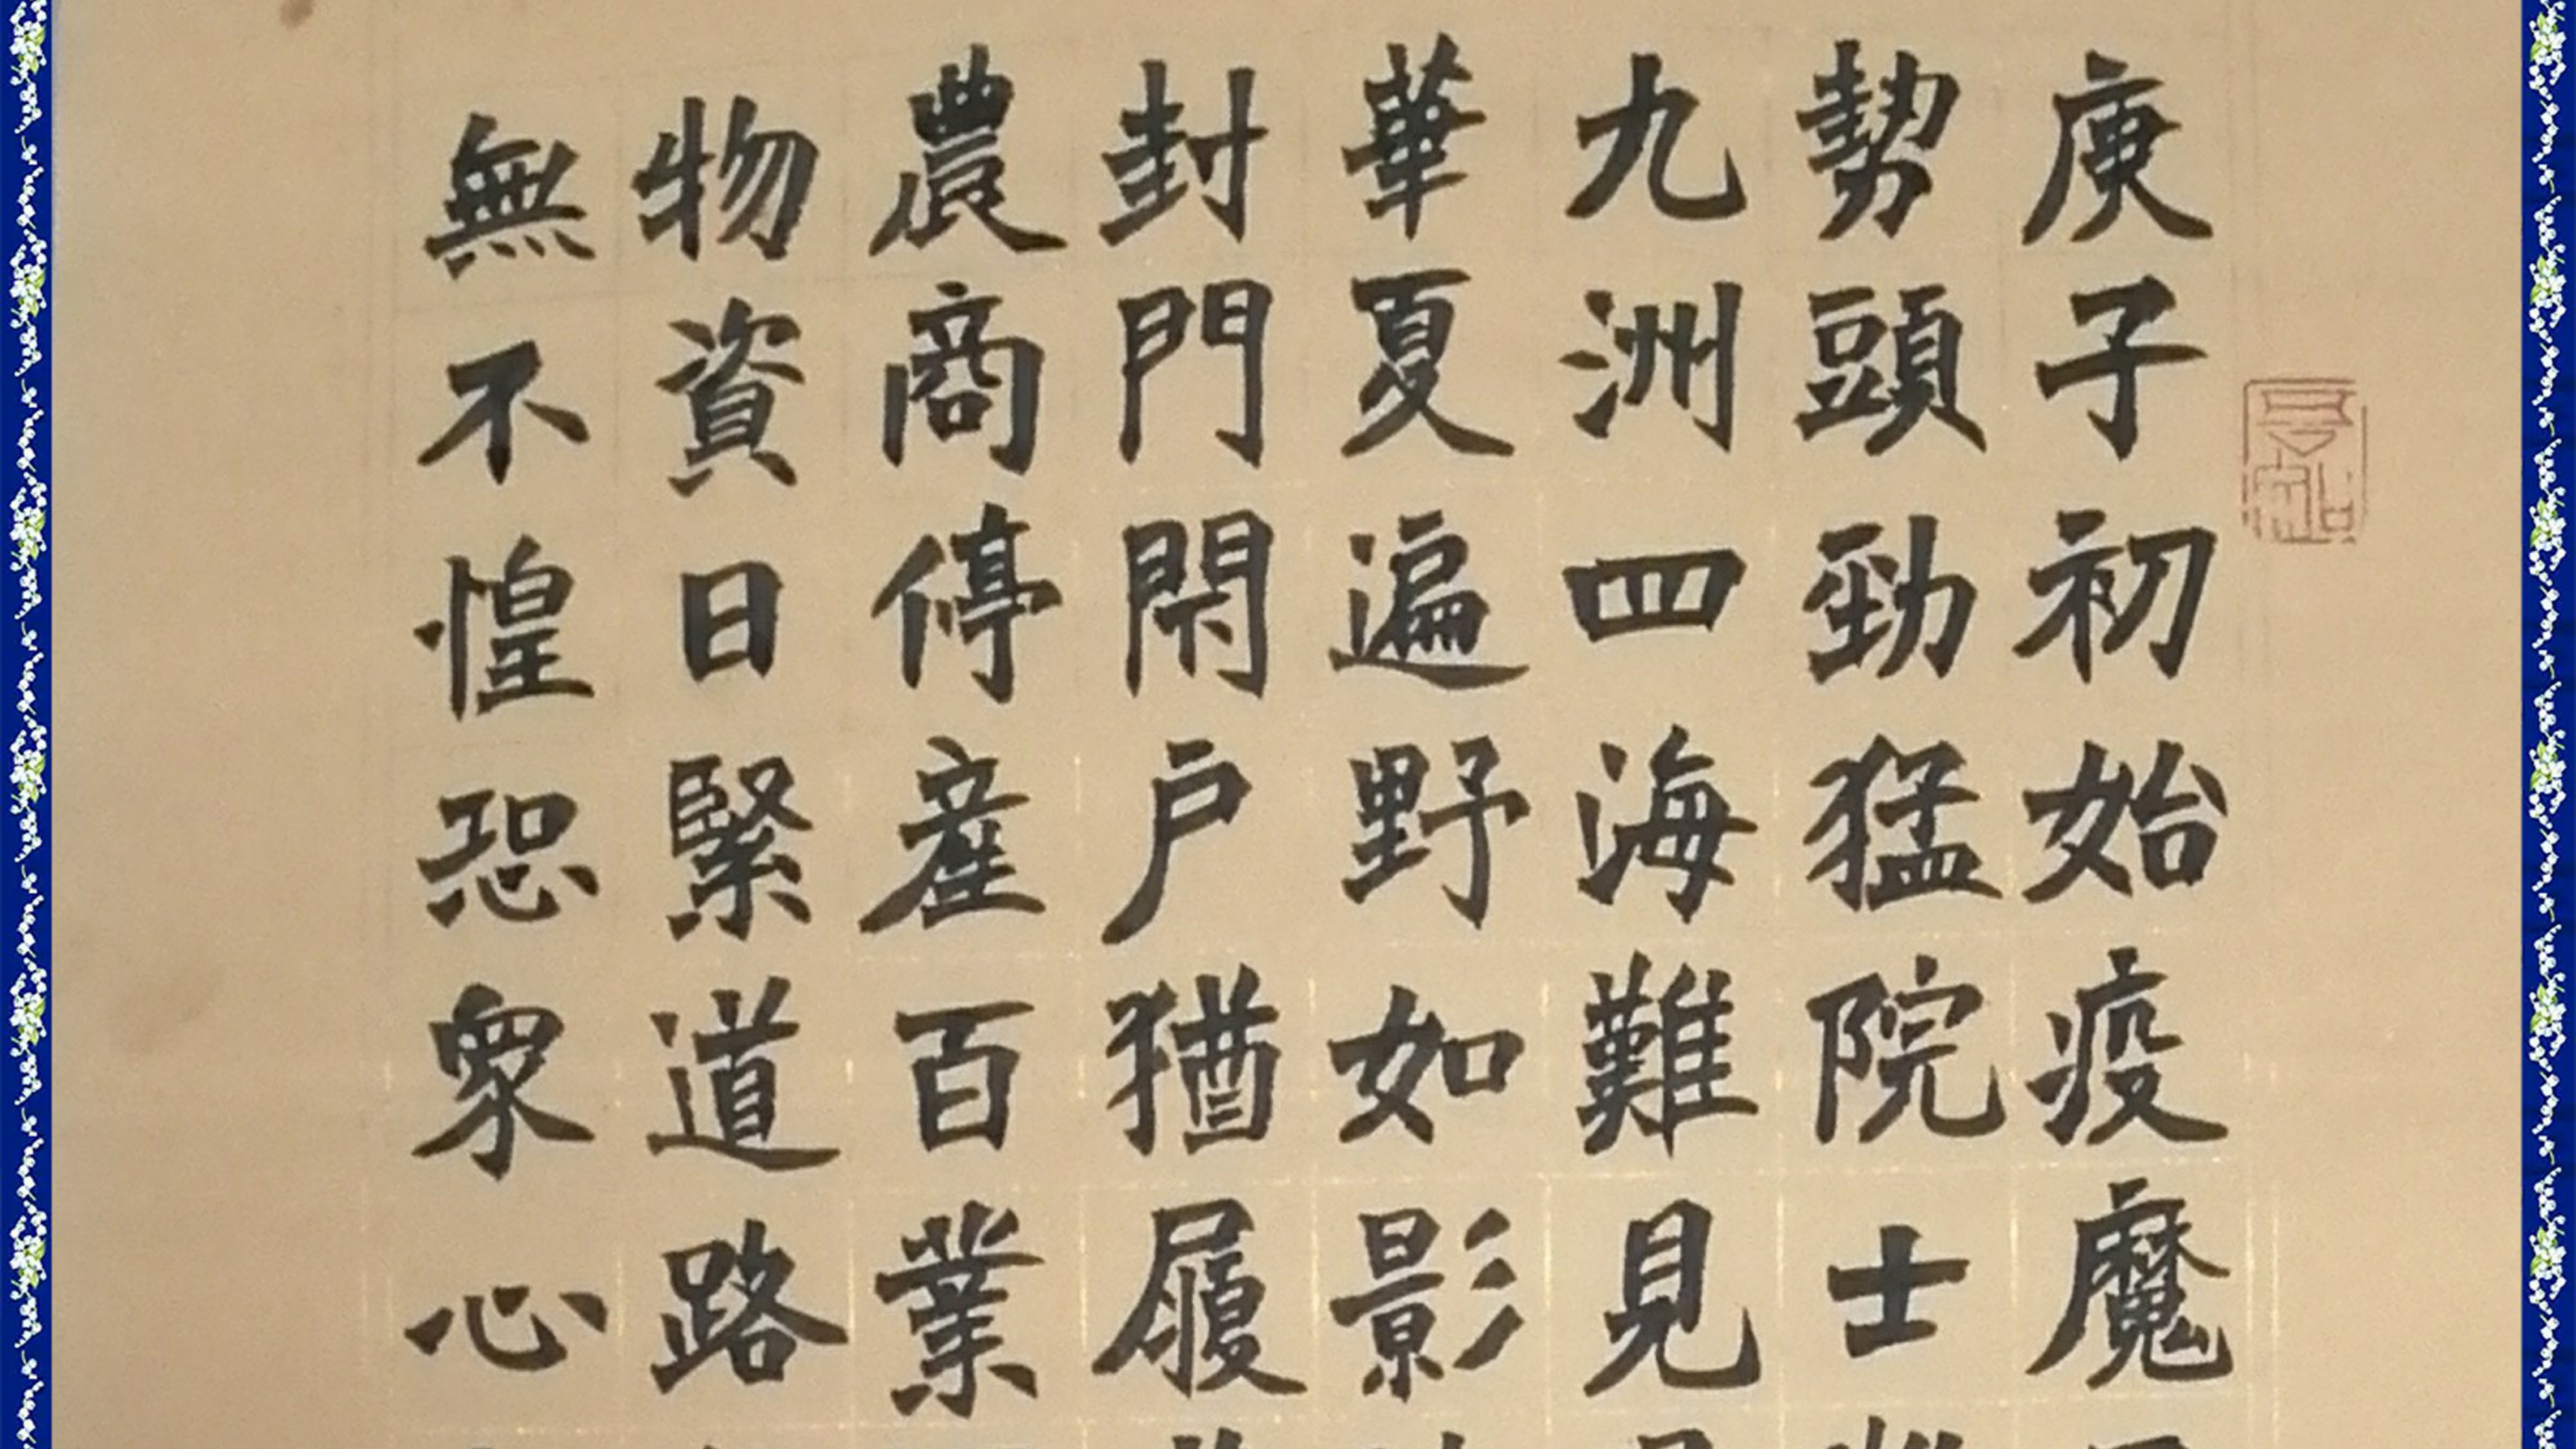 庚子初始疫魔
勢頭勁猛院士
九洲四海難見
華夏遍野如影
封門閉户猶履
農商停產百業
物資日緊道路
無不惶恐眾心